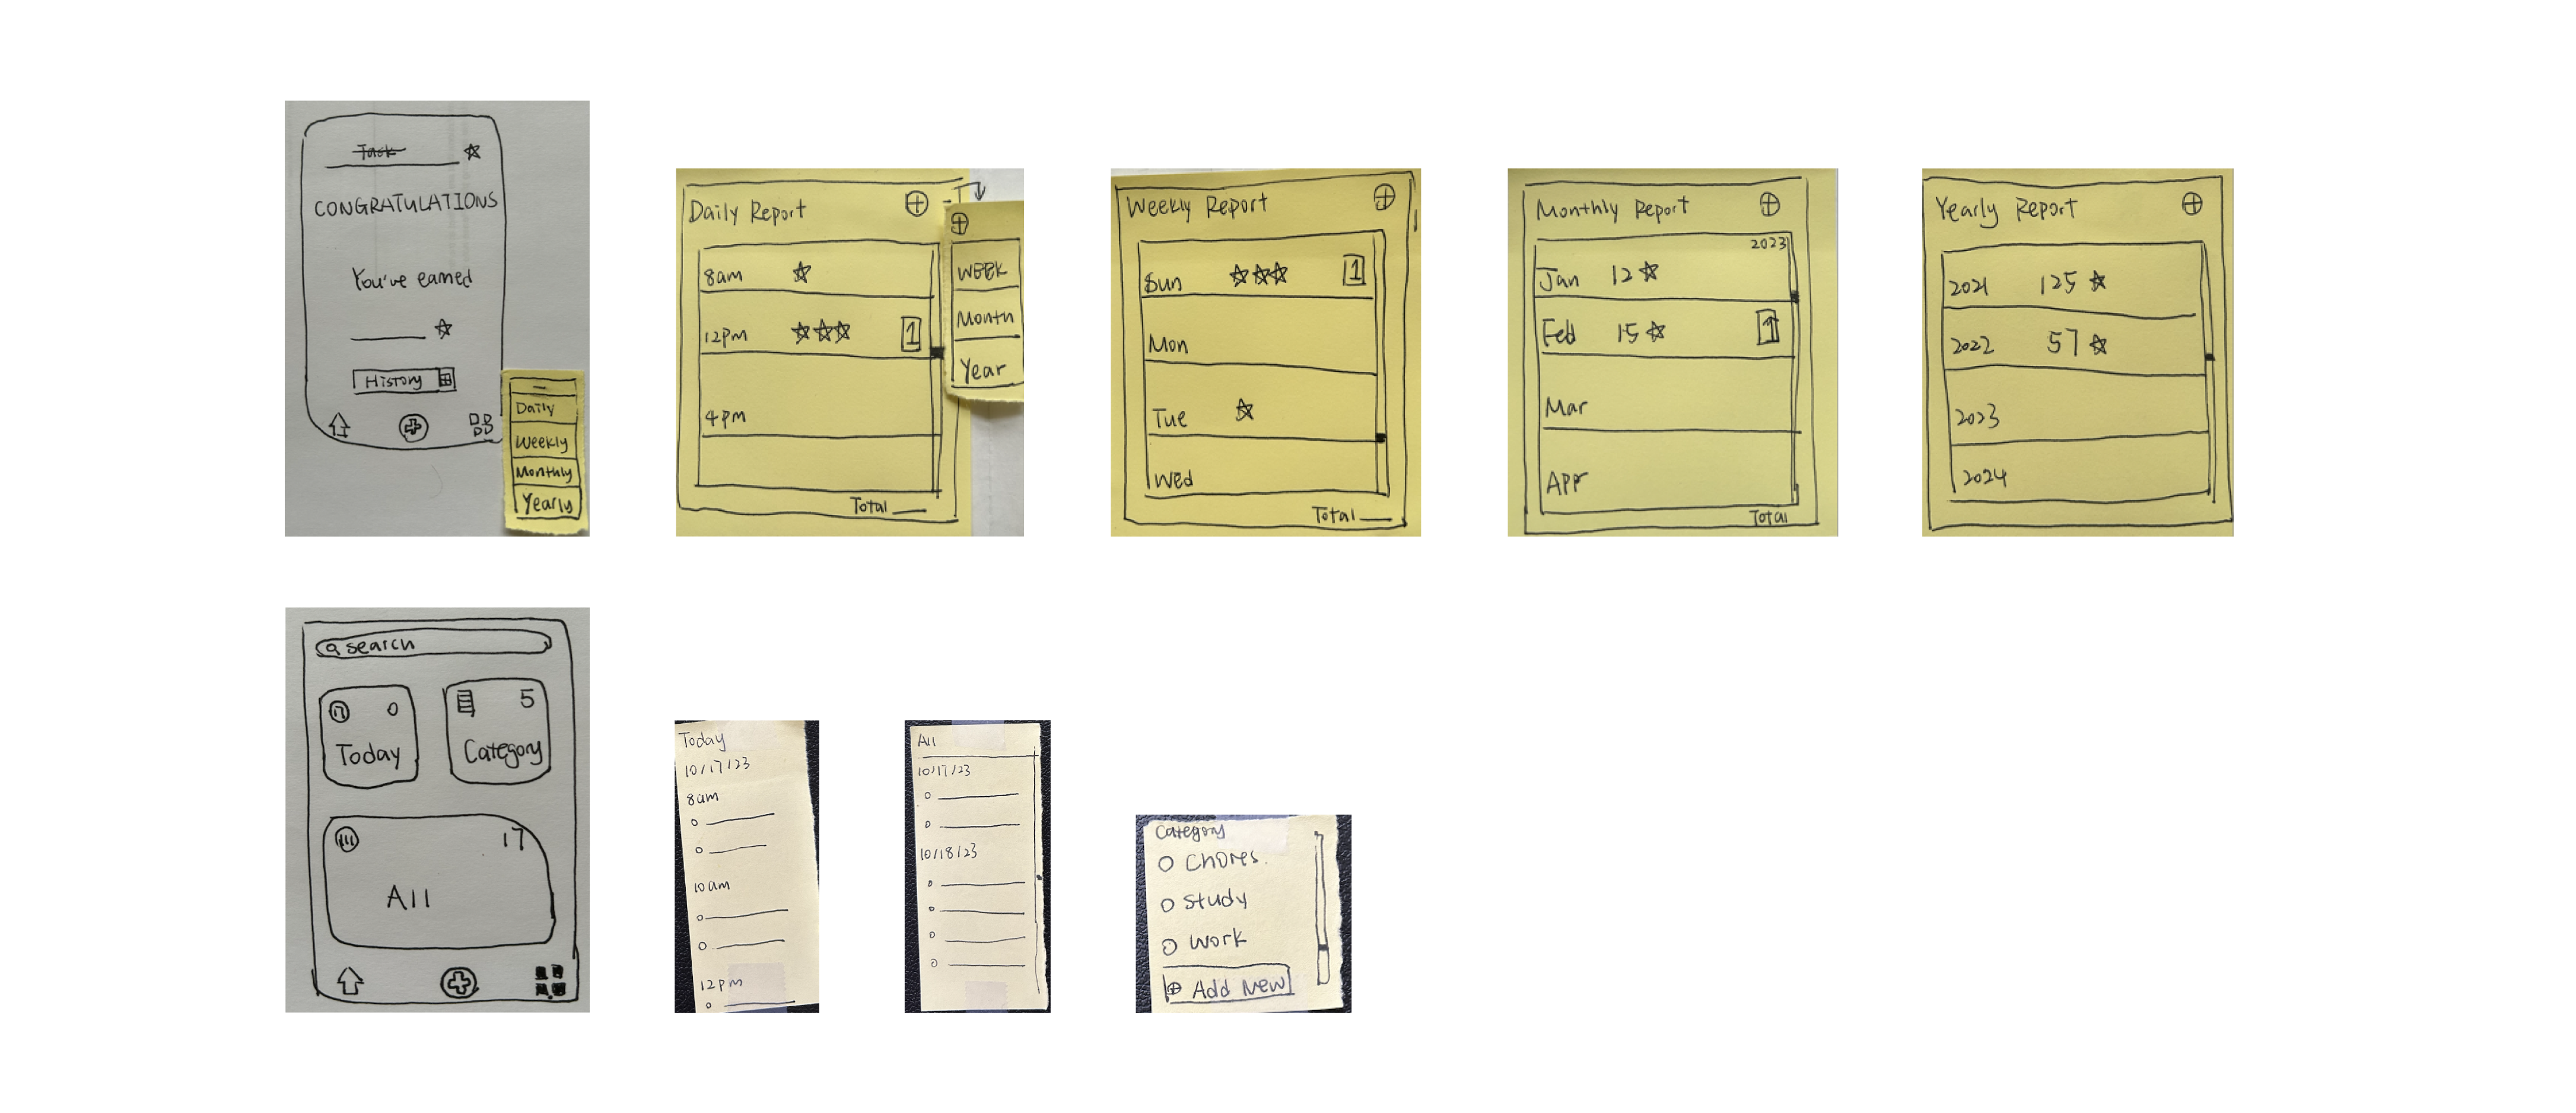 Task
CONGRATULATIONS
You've earned
History
Daily
Weekly
Monthly
Yearly
Daily Report
8am
12pm 1
4pm
Total
WEEK
Month
Year
Weekly Report
Sun 1
Mon
Tue
Wed
Total
Monthly Report
2023
Jan 12
Feb 15 1
Mar
Apr
Total
Yearly Report
2021 125
2022 57
2023
2024
search
17 0
Today
5
Category
17
All
Today
10/17/23
8am
10am
12pm
All
10/17/23
10/18/23
Category
Chores
Study
Work
Add New